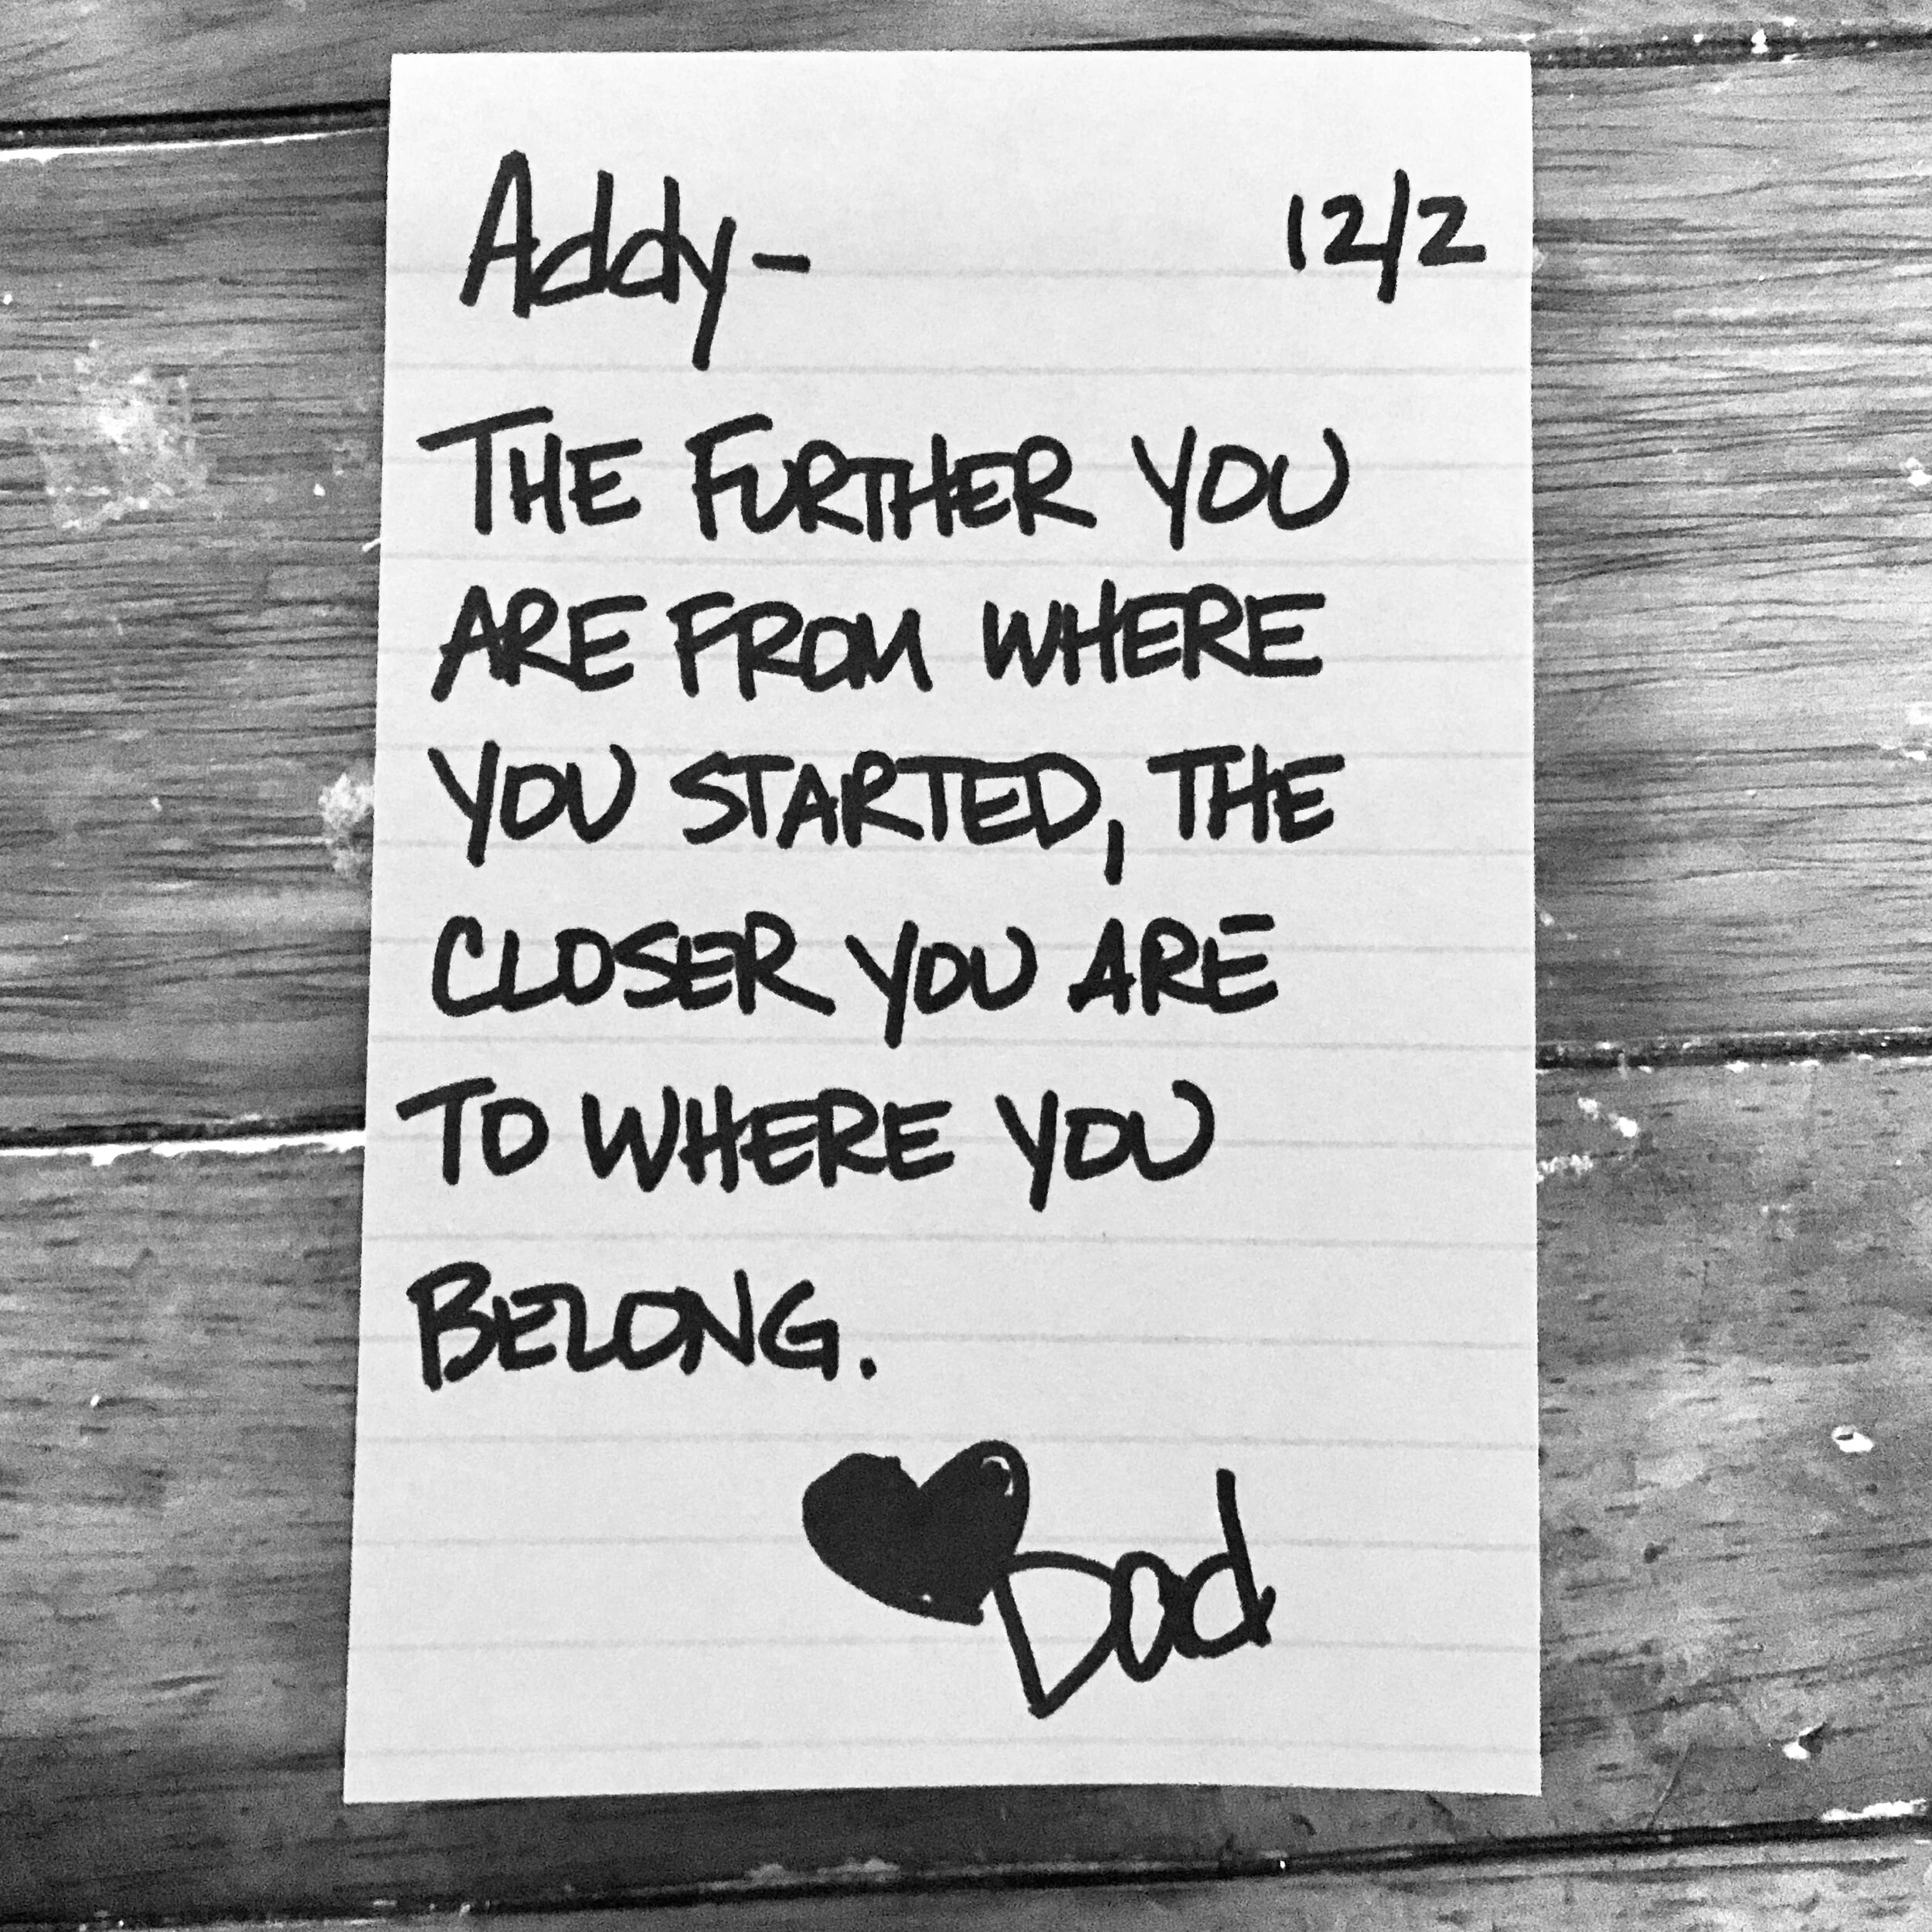 Addy- 12/2
THE FURTHER YOU
ARE FROM WHERE
YOU STARTED, THE
CLOSER YOU ARE
TO WHERE YOU
BELONG.
Dad